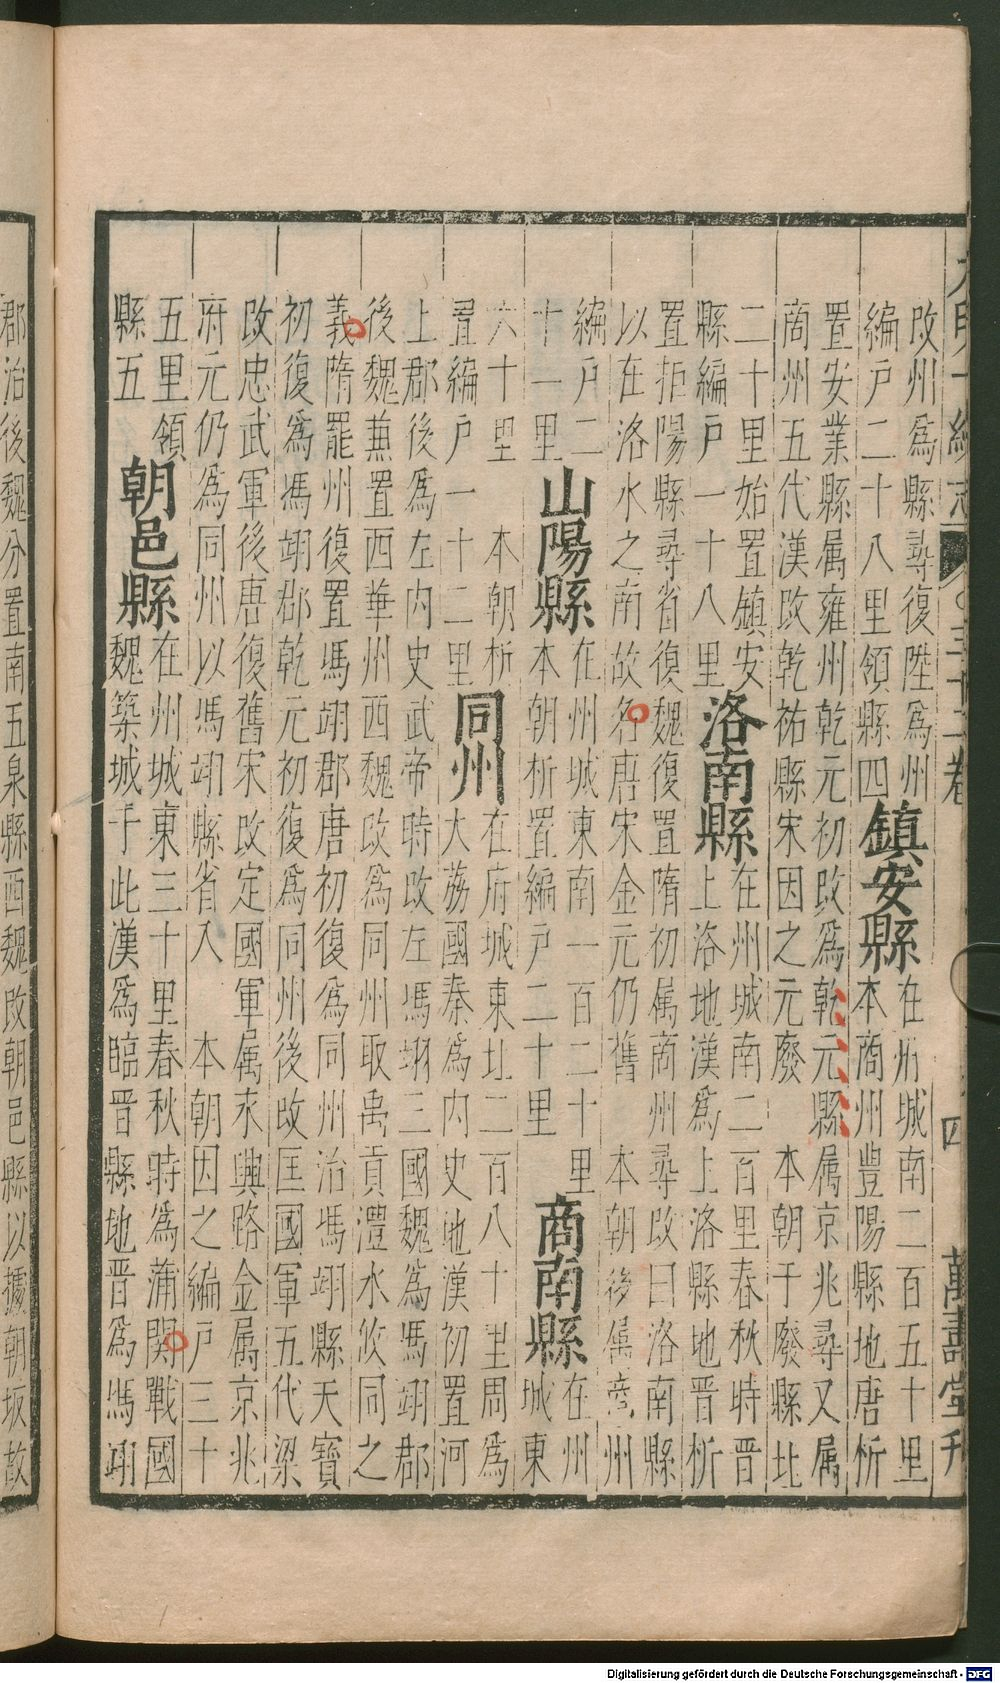 大明一統志 三十二卷 四 萬壽堂刊
改州為縣尋復陞為州
編戶二十八里領縣四
鎮安縣
在府城南二百五十里
本商州豊陽縣地唐析
置安業縣属雍州乾元初改為乾元縣属京兆尋又属
商州五代漢改乾祐縣宋因之元廢 本朝于廢縣北
二十里始置鎮安
縣編戶一十八里
洛南縣
在州城南二百里春秋時晉
上洛地漢為上洛縣地晉析
置拒陽縣尋省復魏復置隋初属商州尋改曰洛南縣
以在洛水之南故名唐宋金元仍舊 本朝後属商州
編戶二
十一里
山陽縣
在州城東南一百二十里
本朝析置編戶二十里
商南縣
在州
城東
六十里 本朝析
置編戶一十二里
同州
在府城東北二百八十里周為
大荔國秦為内史地漢初置河
上郡後為左内史武帝時改左馮翊三國魏為馮翊郡
後魏兼置西華州西魏改為同州取禹貢灃水攸同之
義隋罷州復置馮翊郡唐初復為同州治馮翊縣天寶
初復為馮翊郡乾元初復為同州後改匡國軍五代梁
改忠武軍後唐復舊宋改定國軍属永興路金属京兆
府元仍為同州以馮翊縣省入 本朝因之編戶三十
五里領
縣五
朝邑縣
在州城東三十里春秋時為蒲関戰國
魏築城于此漢為臨晉縣地晉為馮翊
郡治後魏分置南五泉縣西魏改朝邑縣以據朝坂故
Digitalisierung gefördert durch die Deutsche Forschungsgemeinschaft - DFG